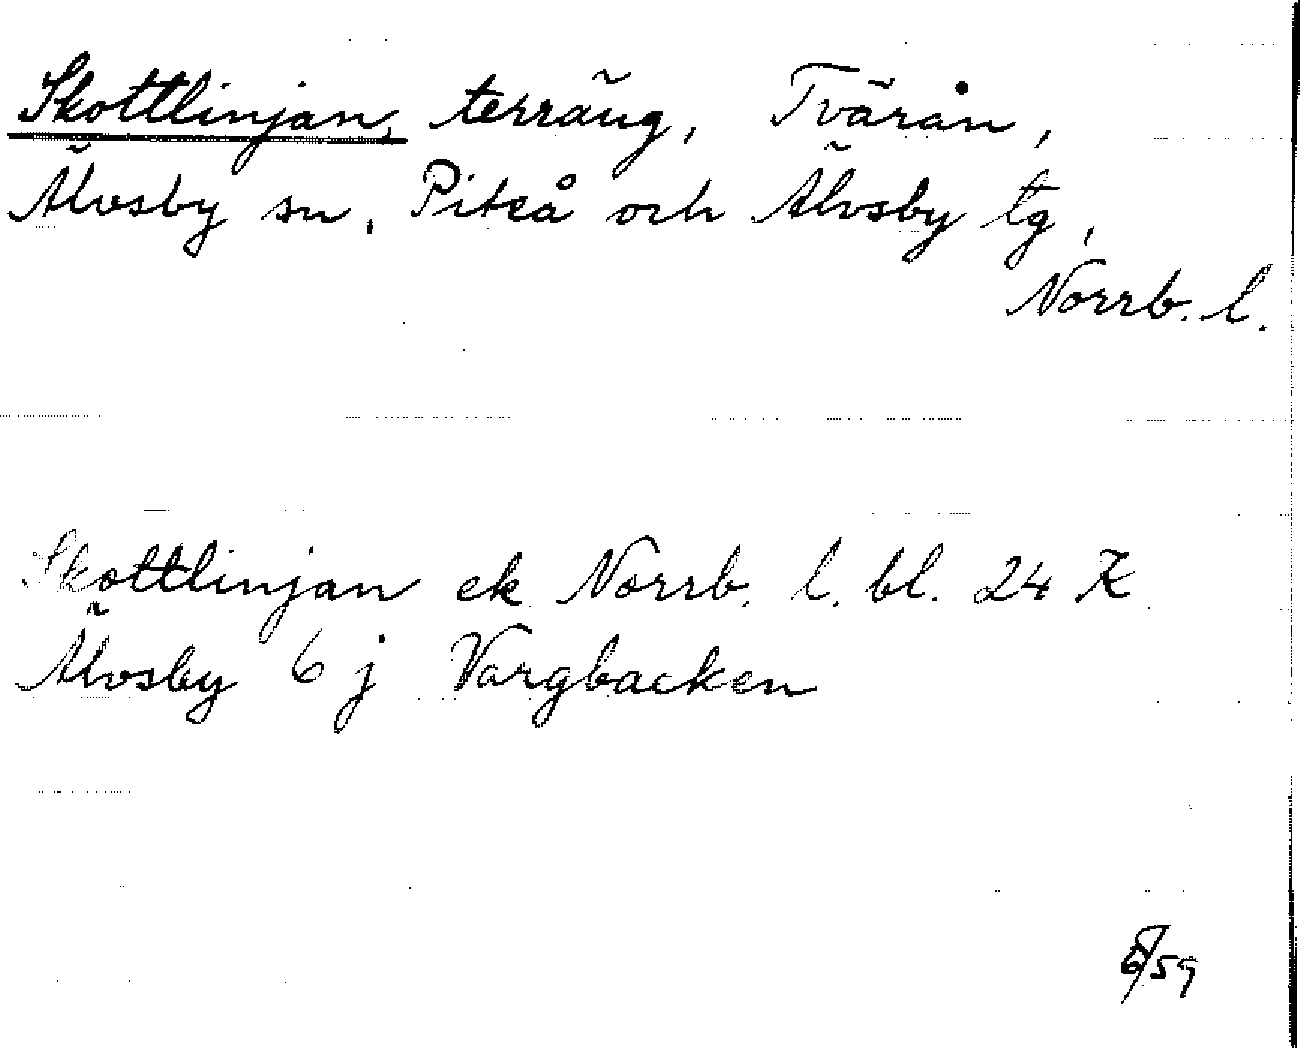 Skottlinjan, terräng, Tvärån,
Älvsby sn, Piteå och Älvsby tg,
Norrb. l.
Skottlinjan ek Norrb. l. bl. 24 K
Älvsby 6 j Vargbacken
/59